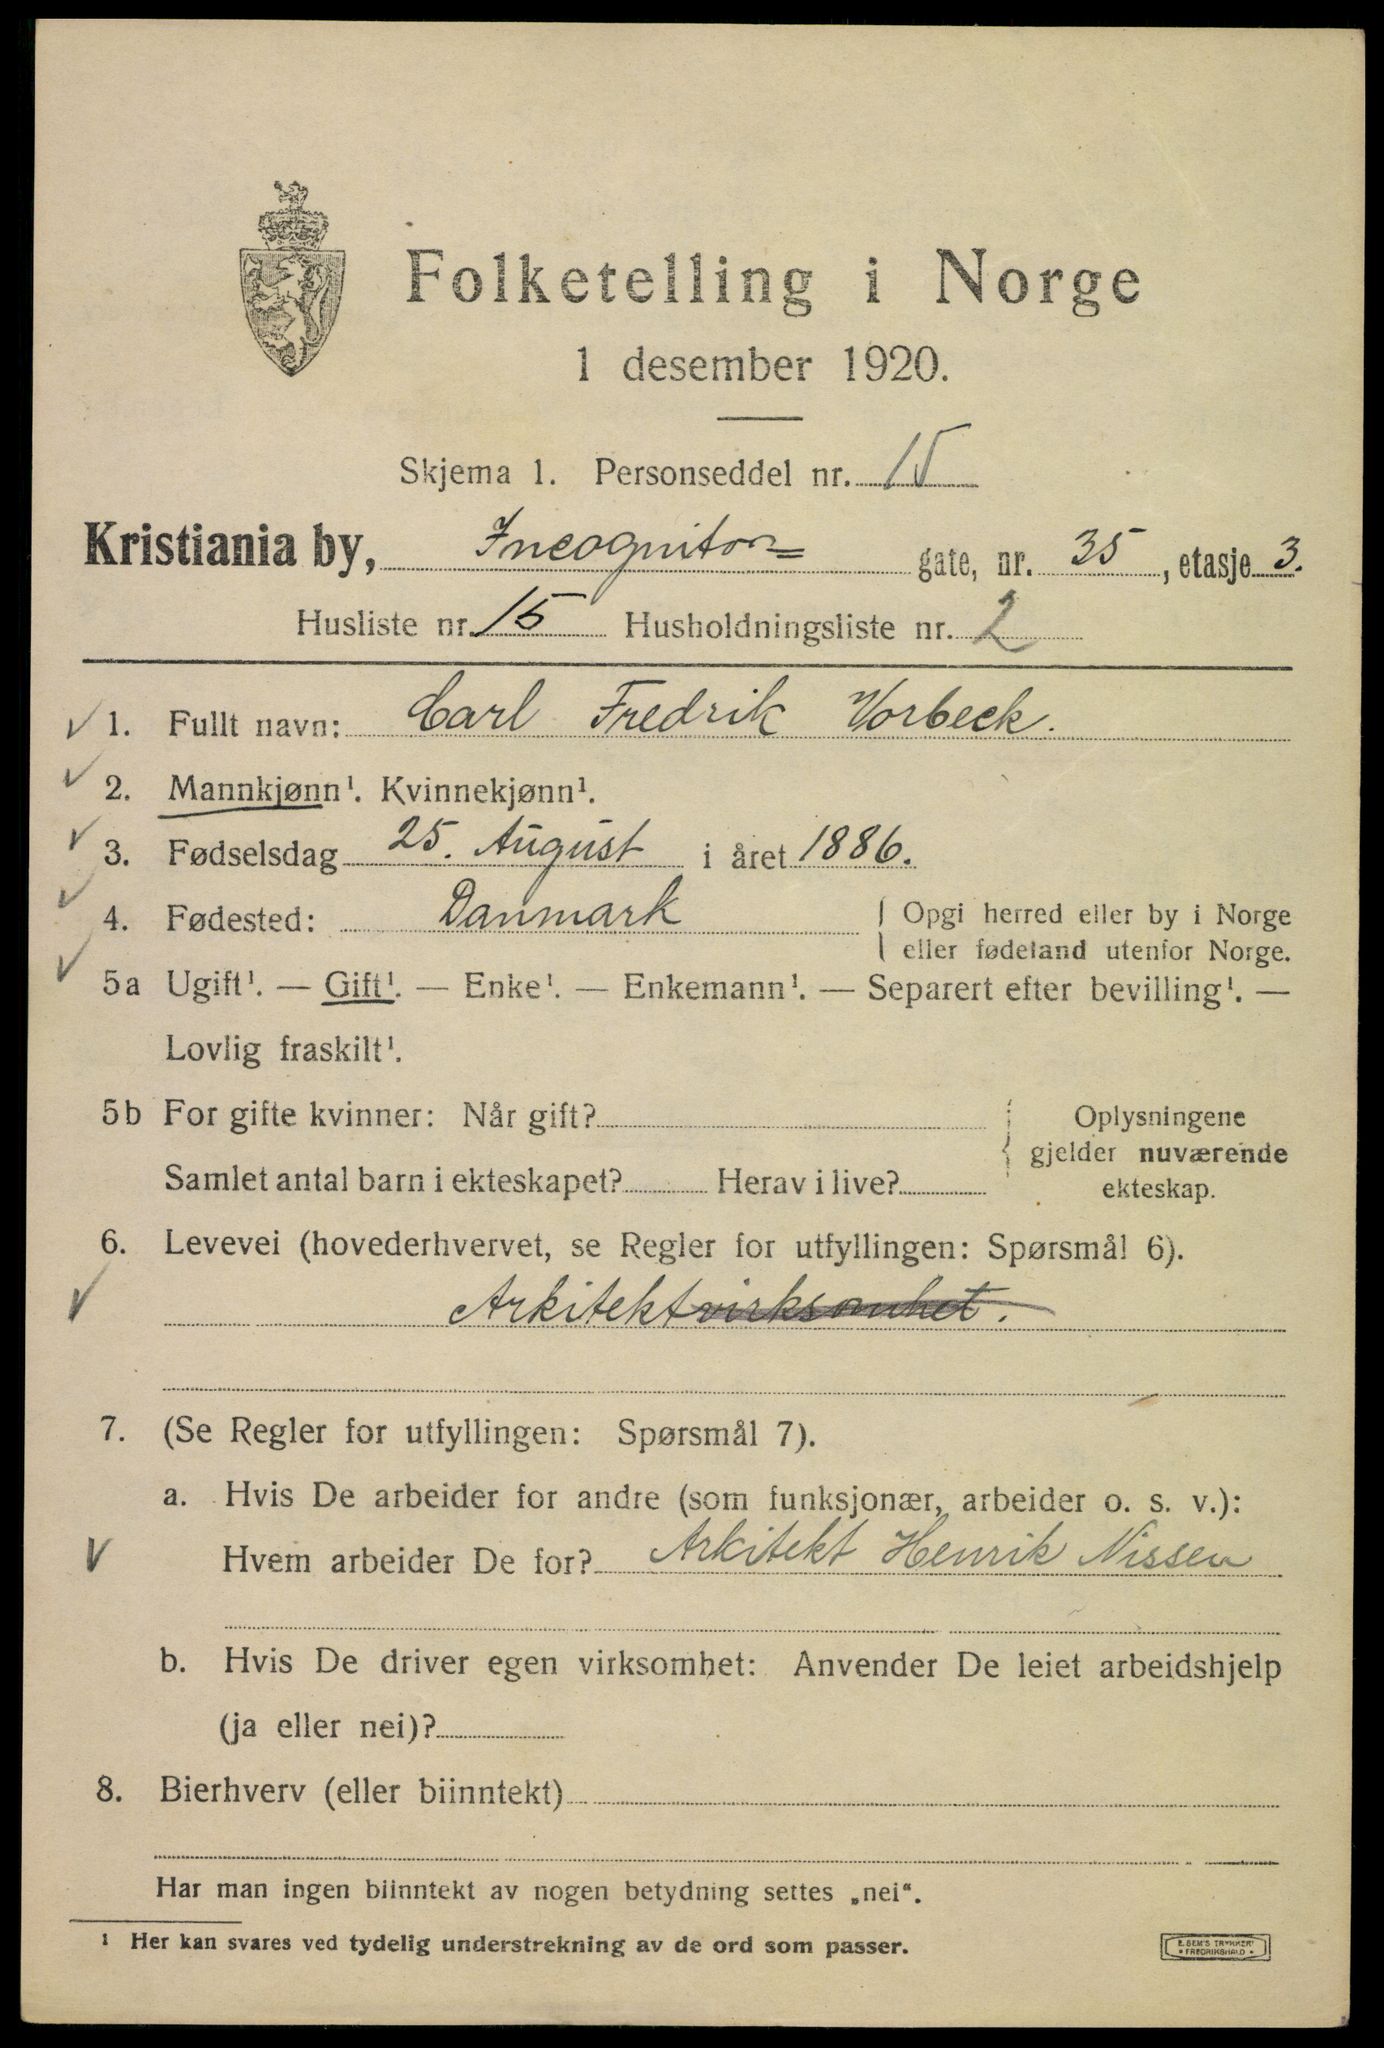 Folketelling i Norge
1 desember 1920.
Skjema 1. Personseddel nr. 15
Kristiania by, Incognito gate, nr. 35, etasje 3.
Husliste nr. 15 Husholdningsliste nr. 2
1. Fullt navn: Carl Fredrik Vorbeck.
2. Mannkjønn¹. Kvinnekjønn¹.
3. Fødselsdag 25. August i året 1886.
4. Fødested: Danmark { Opgi herred eller by i Norge
eller fødeland utenfor Norge.
5a Ugift¹. — Gift¹. — Enke¹. — Enkemann¹. — Separert efter bevilling¹. —
Lovlig fraskilt¹.
5b For gifte kvinner: Når gift? { Oplysningene
gjelder nuværende
Samlet antal barn i ekteskapet? Herav i live? ekteskap.
6. Levevei (hovederhvervet, se Regler for utfyllingen: Spørsmål 6).
Arkitektvirksomhet.
7. (Se Regler for utfyllingen: Spørsmål 7).
a. Hvis De arbeider for andre (som funksjonær, arbeider o. s. v.):
Hvem arbeider De for? Arkitekt Henrik Nissen
b. Hvis De driver egen virksomhet: Anvender De leiet arbeidshjelp
(ja eller nei)?
8. Bierhverv (eller biinntekt)
Har man ingen biinntekt av nogen betydning settes „nei“.
¹ Her kan svares ved tydelig understrekning av de ord som passer.
E. SEM'S TRYKKERI
• FREDRIKSHALD •